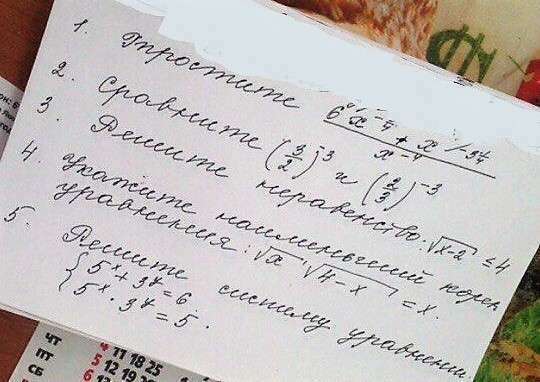 1. Упростите
2. Сравните (3/2)^-3 и (2/3)^-3
3. Решите неравенство: √x-2 ≤ 4
4. Укажите наименьший корень
уравнения: √x · √4-x = x.
5. Решите систему уравнений
{5^x + 3^y = 6
5^x · 3^y = 5.
ЧТ 4 11 18 25
ПТ 5 12 19
СБ 6 13 20